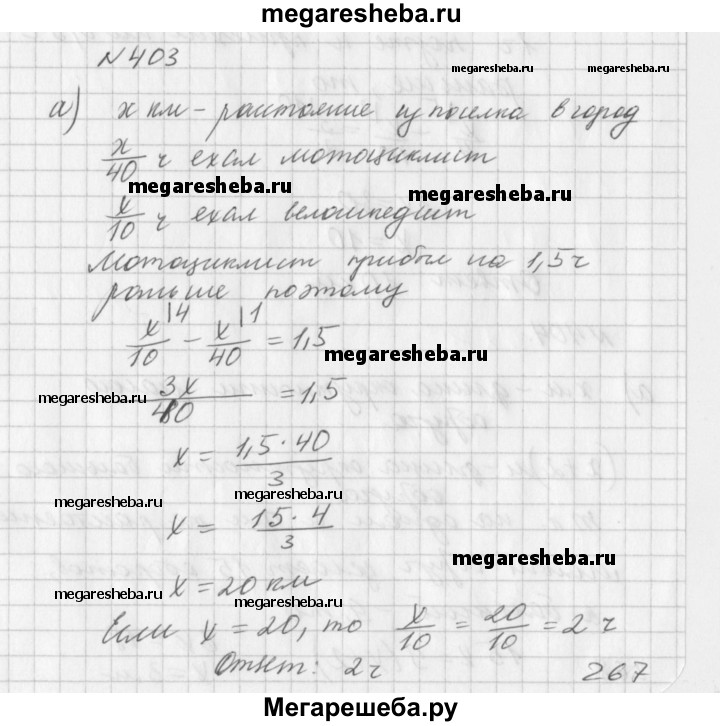 megaresheba.ru
N 403
megaresheba.ru megaresheba.ru
а) x км - расстояние из поселка в город
x/40 ч ехал мотоциклист
megaresheba.ru megaresheba.ru
x/10 ч ехал велосипедист
Мотоциклист прибыл на 1,5 ч
раньше поэтому
x/10 |4 - x/40 |1 = 1,5
megaresheba.ru
megaresheba.ru megaresheba.ru
3x/40 = 1,5
x = 1,5·40/3
megaresheba.ru megaresheba.ru
x = 15·4/3
megaresheba.ru
x = 20 км
megaresheba.ru megaresheba.ru
Если x = 20, то x/10 = 20/10 = 2 ч
Ответ: 2 ч
267
Мегарешеба.ру